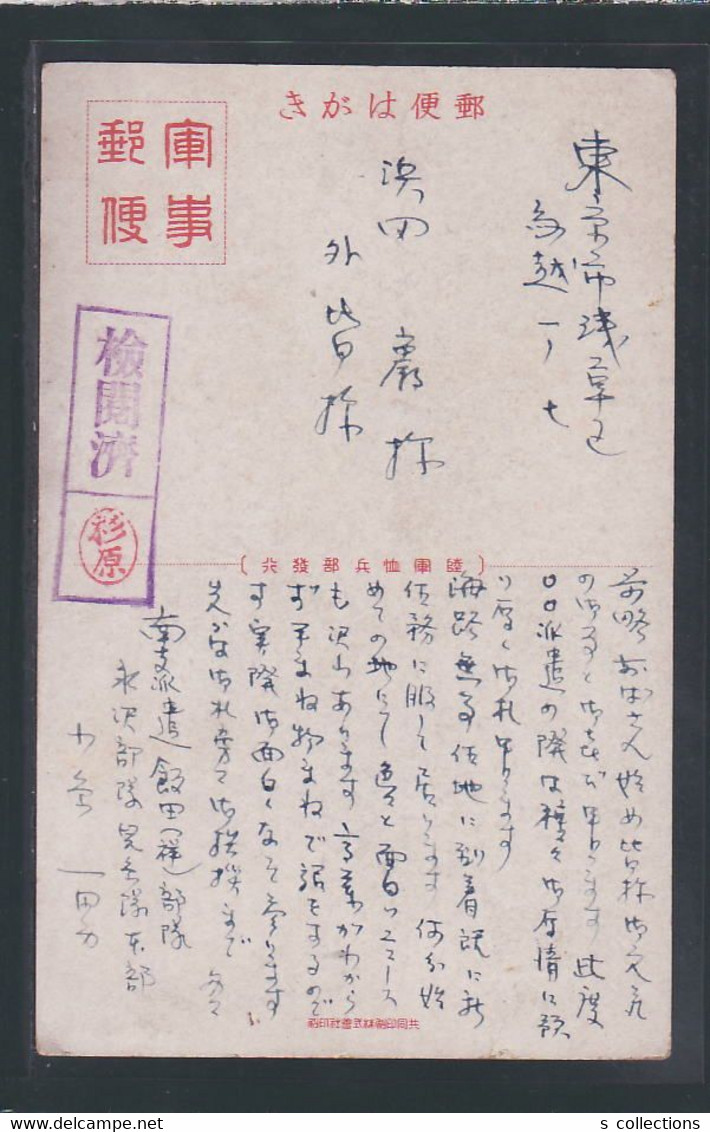 郵便はがき
軍事
郵便
檢閱濟
杉原
東京市浅草区
鳥越一ノ七
浜田 嚴 様
外皆様
〔陸軍恤兵部發行〕
前略 おばさん始め皆様御元気
の御事と御喜び申します 此度
〇〇派遣の際は種々御厚情に預
り厚く御礼申します
海路無事任地に到着既に新
任務に服して居ります 何分始
めての地にて色々と面白いニュース
も沢山あります 言葉がわから
ず手まね物まねで話をするので
す 実際御面白くなって参ります
先づは御礼旁々御挨拶まで
南支派遣飯田(祥)部隊
永沢部隊 本部
一男
共同印刷株式會社印刷
s collections